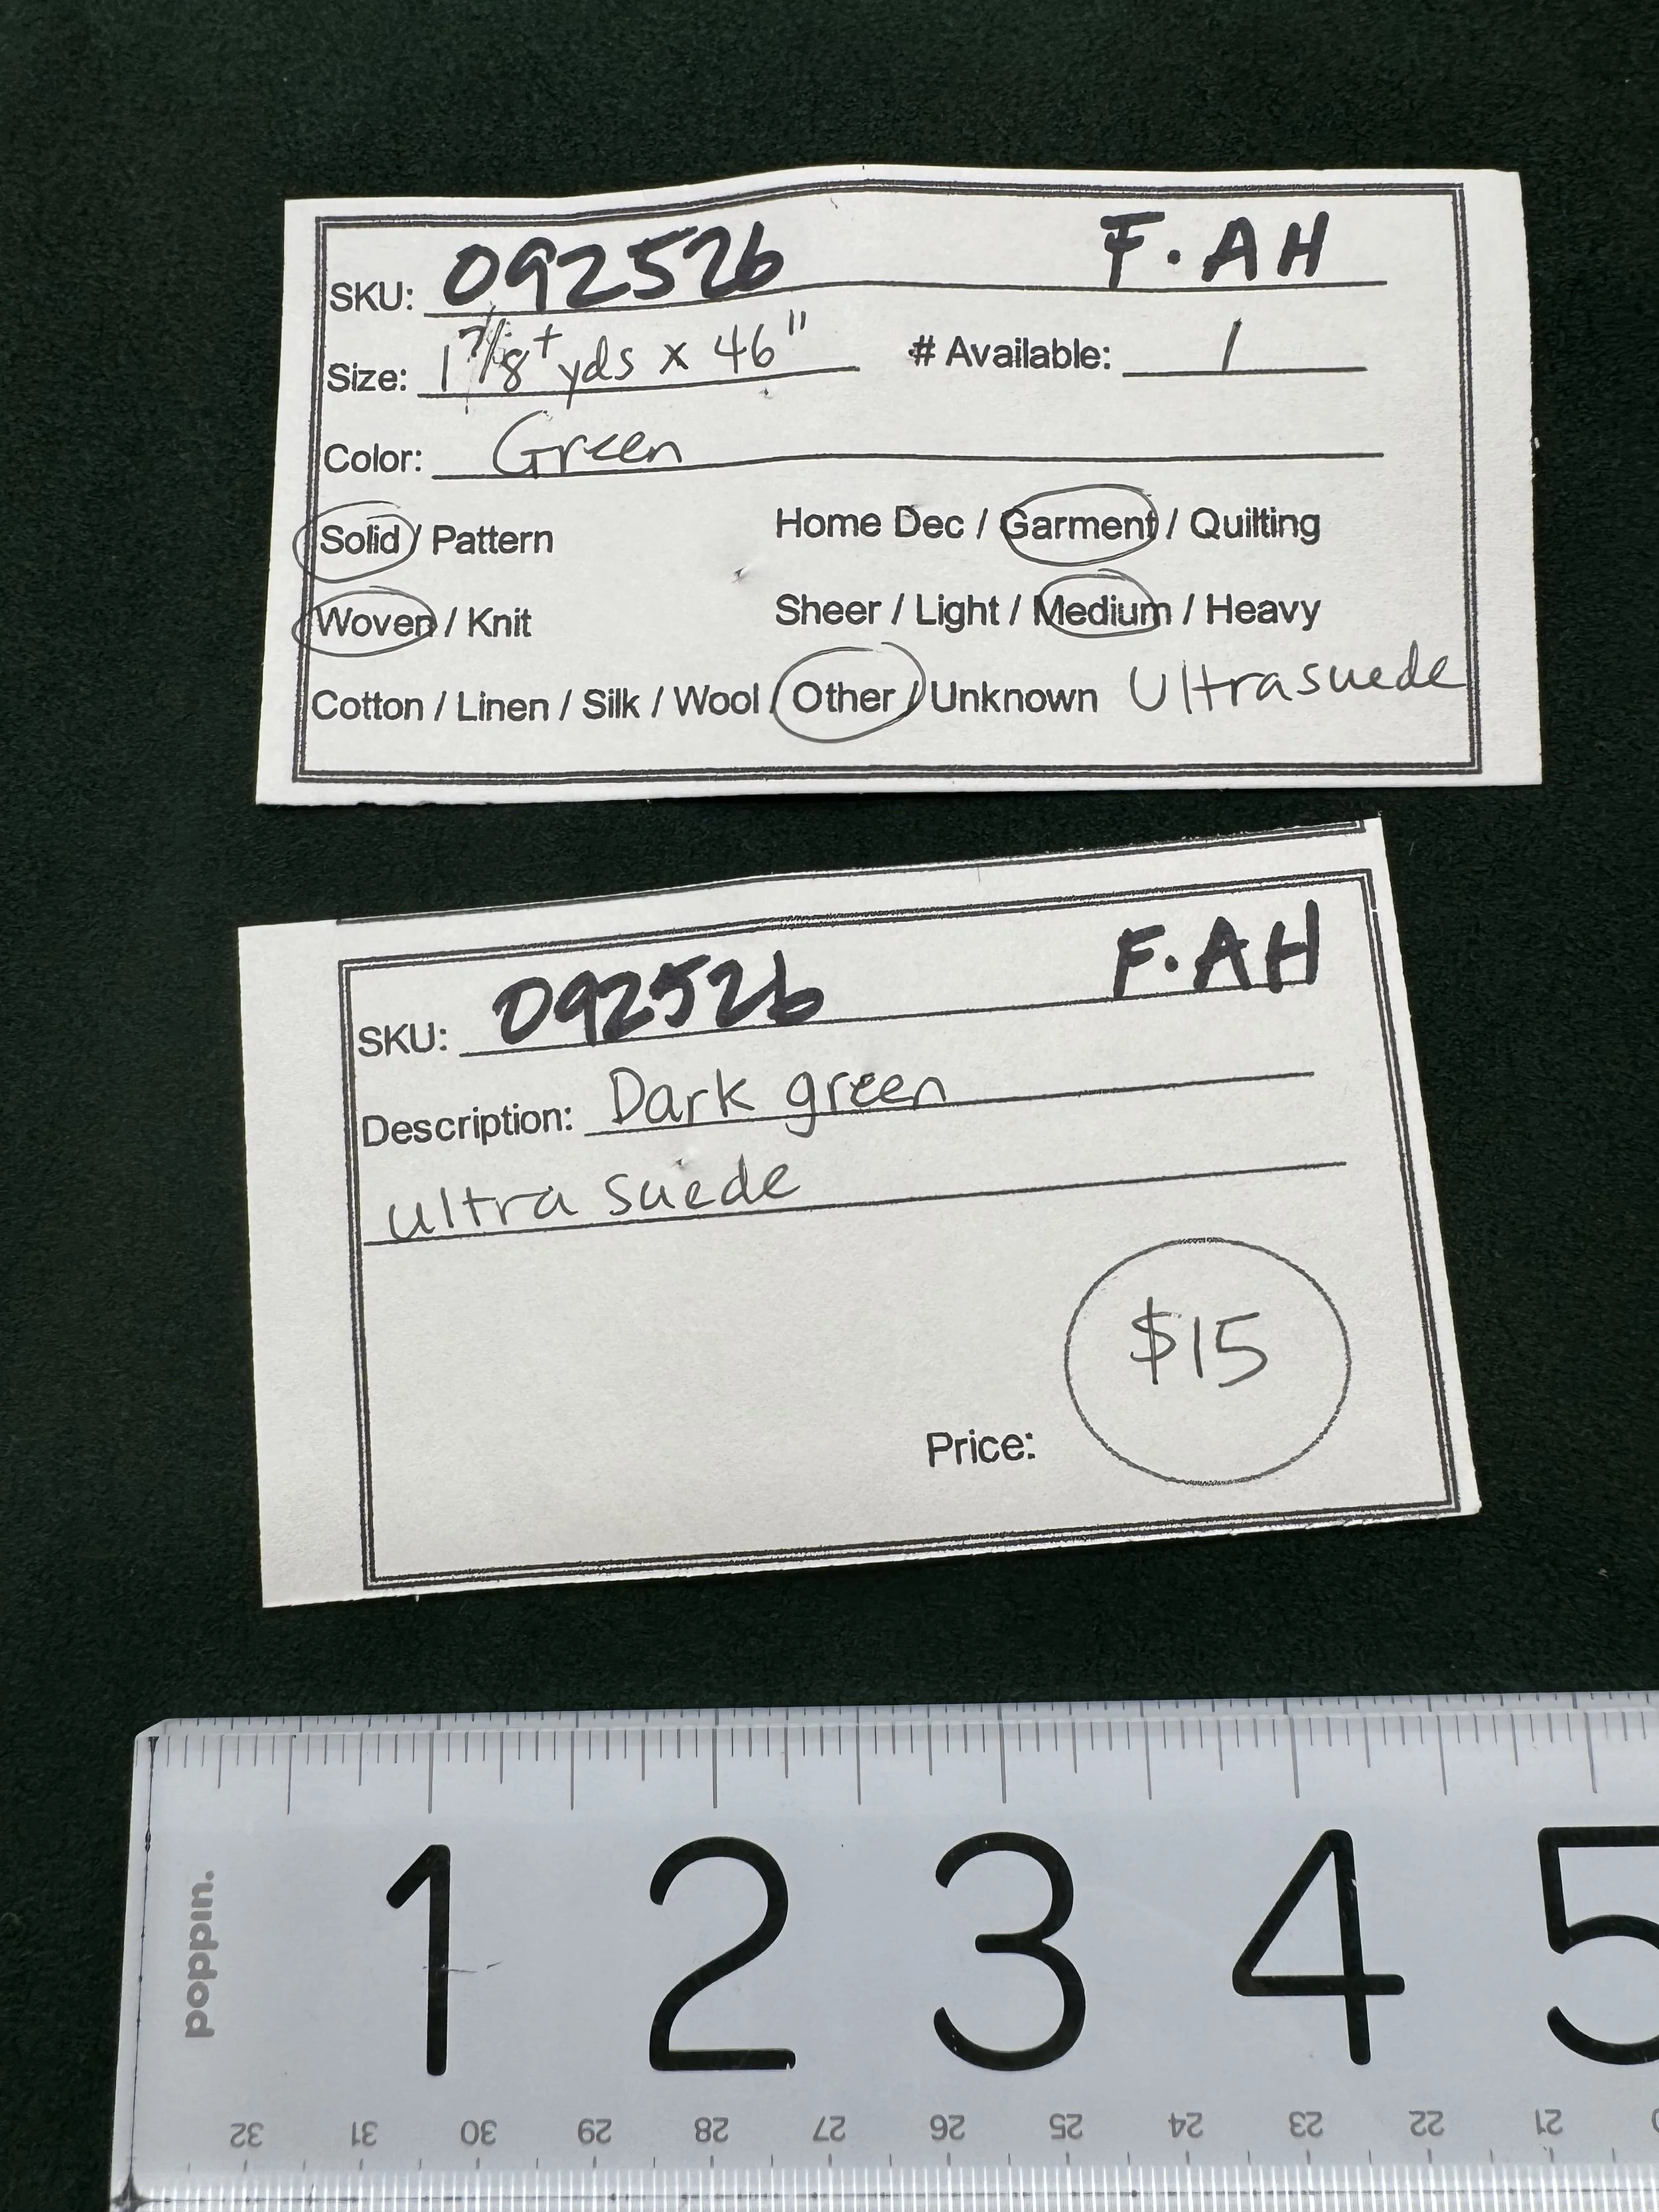 SKU: 092526 F.AH
Size: 1 7/8+ yds x 46" # Available: 1
Color: Green
Solid / Pattern Home Dec / Garment / Quilting
Woven / Knit Sheer / Light / Medium / Heavy
Cotton / Linen / Silk / Wool / Other / Unknown Ultrasuede
SKU: 092526 F.AH
Description: Dark green
ultra suede
$15
Price:
poppin.
1 2 3 4 5
32 31 30 29 28 27 26 25 24 23 22 21